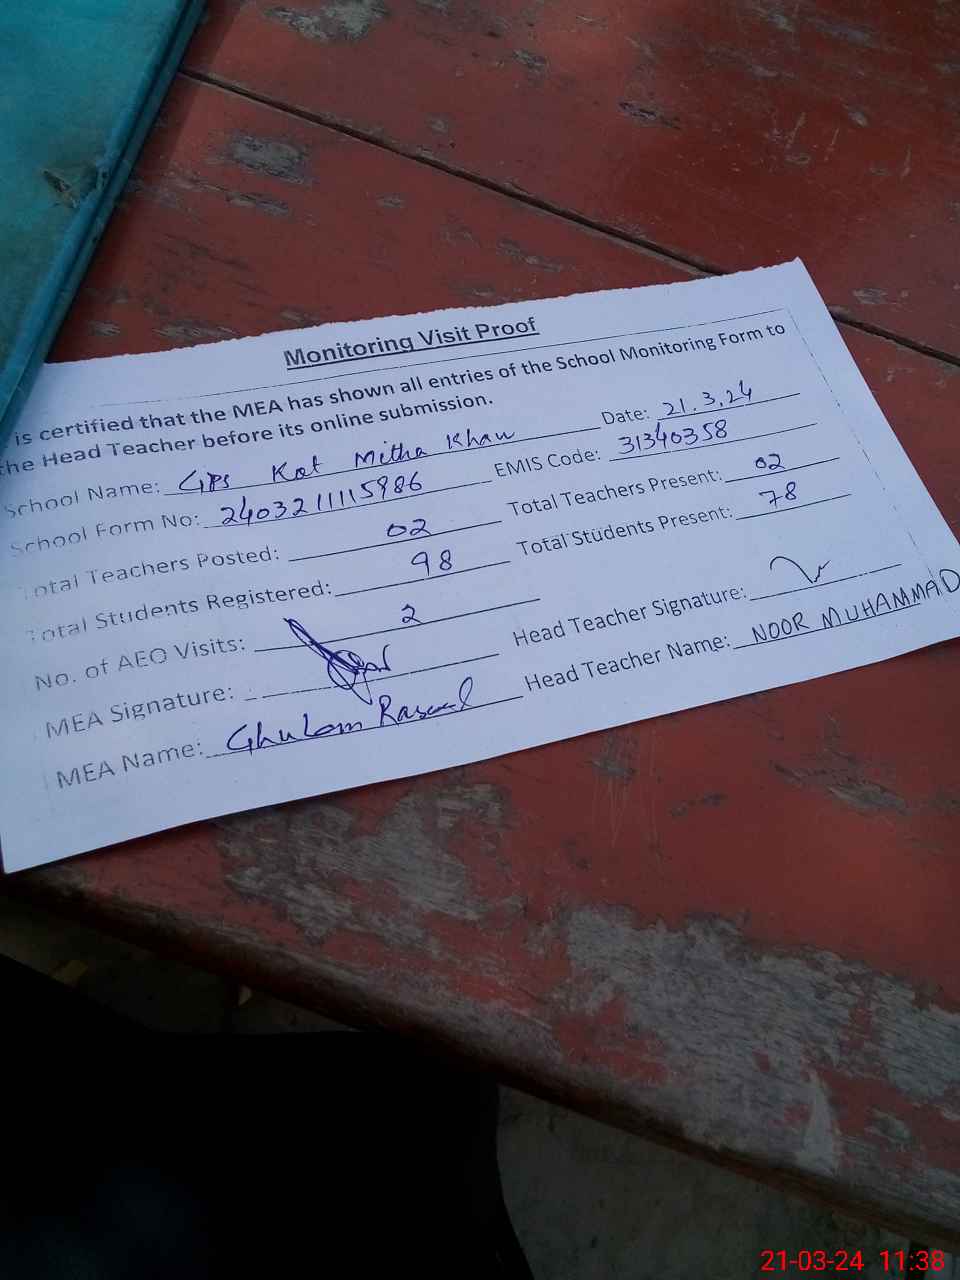 Monitoring Visit Proof
is certified that the MEA has shown all entries of the School Monitoring Form to
the Head Teacher before its online submission.
School Name: GPS Kot Mitha Khan Date: 21.3.24
School Form No: 2403211115986 EMIS Code: 31340358
Total Teachers Posted: 02 Total Teachers Present: 02
Total Students Registered: 98 Total Students Present: 78
No. of AEO Visits: 2
MEA Signature: Head Teacher Signature:
MEA Name: Ghulam Rasool Head Teacher Name: NOOR MUHAMMAD
21-03-24 11:38